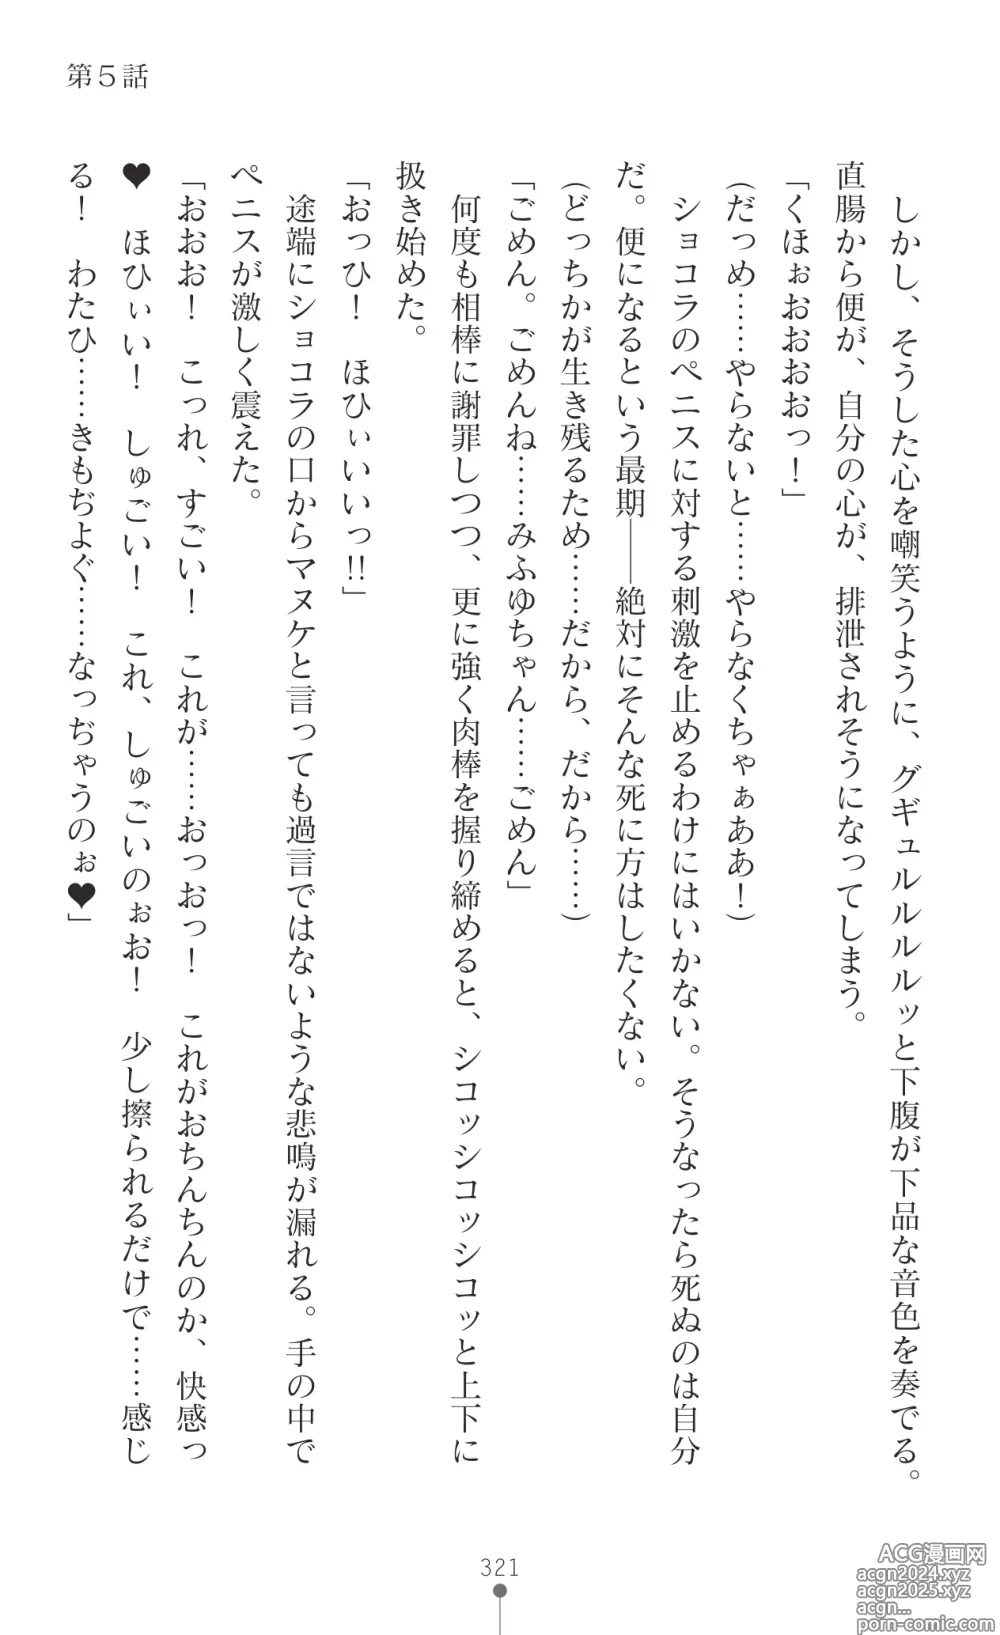 第5話
　しかし、そうした心を嘲笑うように、グギュルルルルッと下腹が下品な音色を奏でる。
直腸から便が、自分の心が、排泄されそうになってしまう。
「くほぉおおおおっ！」
（だっめ……やらないと……やらなくちゃぁああ！）
　ショコラのペニスに対する刺激を止めるわけにはいかない。そうなったら死ぬのは自分
だ。便になるという最期――絶対にそんな死に方はしたくない。
（どっちかが生き残るため……だから、だから……）
「ごめん。ごめんね……みふゆちゃん……ごめん」
　何度も相棒に謝罪しつつ、更に強く肉棒を握り締めると、シコッシコッシコッと上下に
扱き始めた。
「おっひ！　ほひぃいいっ!!」
　途端にショコラの口からマヌケと言っても過言ではないような悲鳴が漏れる。手の中で
ペニスが激しく震えた。
「おおお！　こっれ、すごい！　これが……おっおっ！　これがおちんちんのか、快感っ
♥　ほひぃい！　しゅごい！　これ、しゅごいのぉお！　少し擦られるだけで……感じ
る！　わたひ……きもぢよぐ……なっぢゃうのぉ♥」
321
ACG漫画网
acgn2024.xyz
acgn2025.xyz
acgn...
porn-comic.com